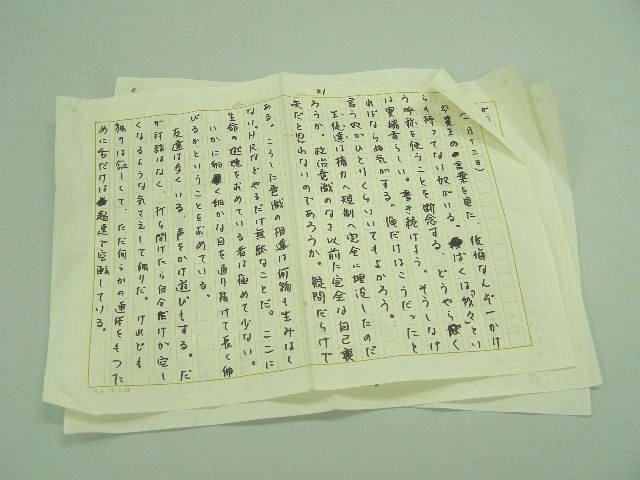 21
から。
(一月十三日)
卒業生の言葉を見た。後悔なんぞ一かけ
らも持ってない奴がいる。ぼくは"我々"とい
う呼称を使うことを断念する。どうやら
は異端者らしい。書き続けよう。そうしなけ
ればならぬ気がする。俺だけはこうだったと
言う奴がひとりくらいいてもよかろう。
生徒達は権力へ規制へ完全に埋没したのだ
ろうか。政治意識のなさ以前に完全な自己喪
失だと思わないのであろうか。疑問だらけで
ある。こうした意識の相違は何物も生みはし
ない。HRなどやるだけ無駄なことだ。ここに
生命の燃焼を求めている者は極めて少ない。
いかに細かな目を通り抜けて長く伸
びるかということを求めている。
友達は多くいる。声をかけ遊びもする。だ
が対話はなく、打ち開けたら自分だけが空し
くなるような気さえして独りだ。けれども
独りは寂しくて、ただ何らかの連体をもつた
めに舌だけは超速で空転している。